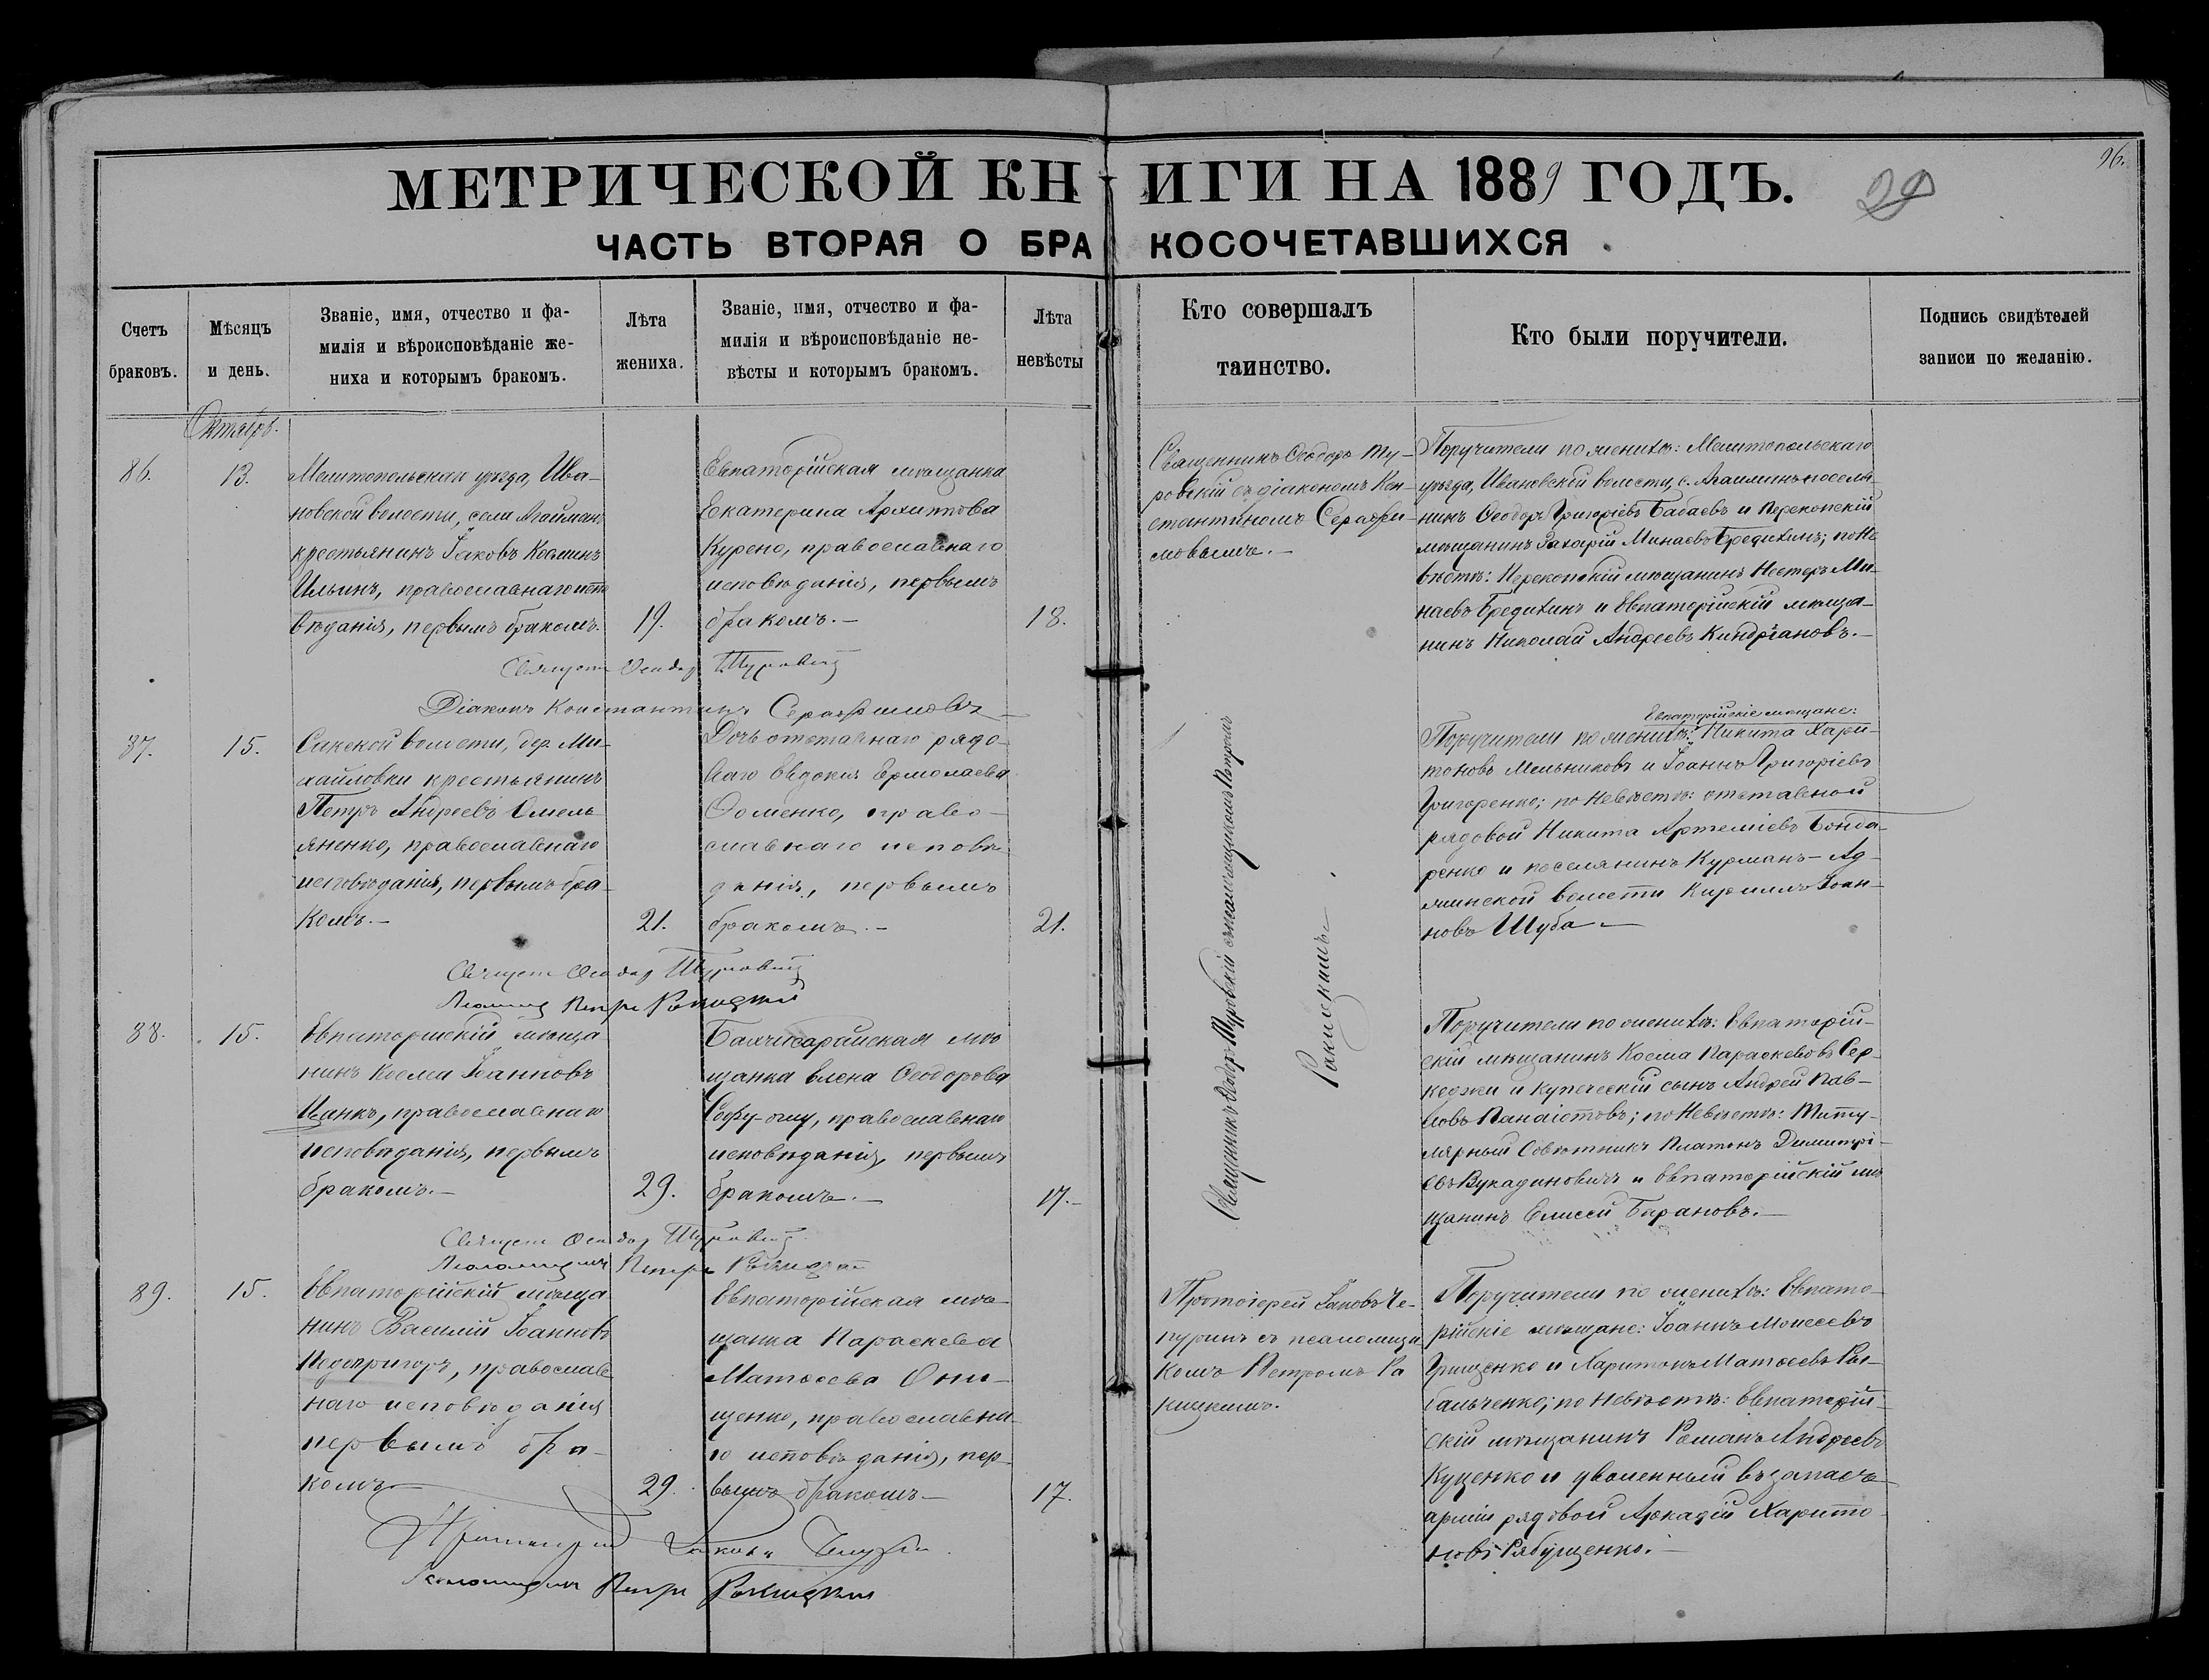 96.
МЕТРИЧЕСКОЙ КНИГИ НА 1889 ГОДЪ.
29
ЧАСТЬ ВТОРАЯ О БРАКОСОЧЕТАВШИХСЯ
Счетъ
браковъ.
Мѣсяцъ
и день.
Званіе, имя, отчество и фа-
милія и вѣроисповѣданіе же-
ниха и которымъ бракомъ.
Лѣта
жениха.
Званіе, имя, отчество и фа-
милія и вѣроисповѣданіе не-
вѣсты и которымъ бракомъ.
Лѣта
невѣсты
Кто совершалъ
таинство.
Кто были поручители.
Подпись свидѣтелей
записи по желанію.
Октябрь.
86.
13.
Мелитопольскаго уѣзда, Ива-
новской волости, села Агайманъ
крестьянинъ Іаковъ Косминъ
Ильинъ, православнаго испо
вѣданія, первымъ бракомъ.
19.
Евпаторійская мѣщанка
Екатерина Архиппова
Курено, православнаго
исповѣданія, первымъ
бракомъ.—
18.
Священникъ Ѳеодоръ Ту-
ровскій съ діакономъ Кон-
стантиномъ Серафи-
мовымъ.—
Поручители по женихѣ: Мелитопольскаго
уѣзда, Ивановской волости, с. Агайманъ поселя-
нинъ Ѳеодоръ Григоріевъ Бабаевъ и Перекопскій
мѣщанинъ Захарій Минаевъ Бредихинъ; по не
вѣстѣ: Перекопскій мѣщанинъ Нестеръ Ми-
наевъ Бредихинъ и Евпаторійскій мѣща-
нинъ Николай Андреевъ Киндріановъ.—
Священ Ѳеодор Туровскій
Діаконъ Константинъ Серафимовъ
87.
15.
Сакской волости, дер. Ми-
хайловки крестьянинъ
Петръ Андреевъ Омель
яненко, православнаго
исповѣданія, первымъ бра-
комъ.—
21.
Дочь отставнаго рядо-
ваго Евдокія Ермолаева
Ѳоменко, право-
славнаго исповѣ
данія, первымъ
бракомъ.—
21.
Священникъ Ѳеодоръ Туровскій съ псаломщикомъ Петромъ
Ракицкимъ.
Евпаторійскіе мѣщане:
Поручители по женихѣ: Никита Хари-
тоновъ Мельниковъ и Іоаннъ Григоріевъ
Григоренко; по невѣстѣ: отставной
рядовой Никита Артеміевъ Бонда-
ренко и поселянинъ Курманъ-Ад-
жинской волости Кириллъ Іоан-
новъ Шуба.—
Священ Ѳеодор Туровскій
Псаломщ Петръ Ракицкій
88.
15.
Евпаторійскій мѣща
нинъ Косма Іоанновъ
Цанкъ, православнаго
исповѣданія, первымъ
бракомъ.—
29.
Бахчисарайская мѣ
щанка Елена Ѳеодорова
Софу-оглу, православнаго
исповѣданія, первымъ
бракомъ.—
17.—
Поручители по женихѣ: Евпаторій-
скій мѣщанинъ Косма Параскевовъ Сер-
кеджи и купеческій сынъ Андрей Пав-
ловъ Панаіотовъ; по невѣстѣ: Титу-
лярный Совѣтникъ Платонъ Димитрі-
евъ Вукадиновичъ и Евпаторійскій мѣ
щанинъ Елисей Барановъ.—
Священ Ѳеодор Туровскій
Псаломщикъ Петръ Ракицкій
89.
15.
Евпаторійскій мѣща
нинъ Василій Іоанновъ
Подопригоръ, православ
наго исповѣданія
первымъ бра-
комъ.
29.
Евпаторійская мѣ-
щанка Параскева
Матѳеева Они-
щенко, православна-
го исповѣданія, пер-
вымъ бракомъ.—
17.
Протоіерей Іаковъ Че-
пуринъ съ псаломщи
комъ Петромъ Ра
кицкимъ.
Поручители по женихѣ: Евпато-
рійскіе мѣщане: Іоаннъ Моисеевъ
Грищенко и Харитонъ Матѳеевъ Ры-
бальченко; по невѣстѣ: Евпаторій-
скій мѣщанинъ Романъ Андреевъ
Куценко и уволенный въ запасъ
арміи рядовой Аркадій Харито
новъ Рябущенко.—
Протоіерей Іаковъ Чепуринъ
Псаломщикъ Петръ Ракицкій